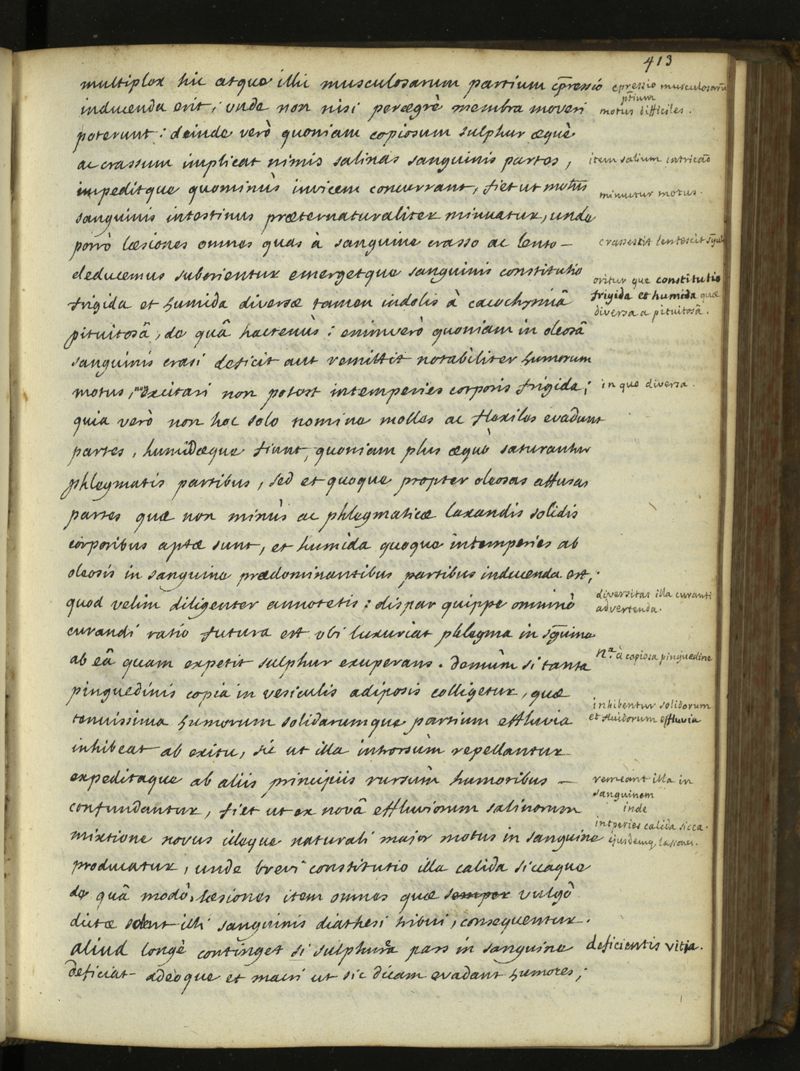 413
multiplex hic atque illic musculosarum partium cp̄ressio
inducenda erit, unde non nisi peraegrè membra moveri
poterunt: deinde verò quoniam copiosum sulphur aequè
ac crassum implicat nimis salinas sanguinis partes,
impeditque quominùs invicem concurrant, fiet ut motus
sanguinis intestinus praeternaturaliter minuatur, unde
porrò laesiones omnes quas à sanguine crasso ac lento —
deducemus suborientur emergetque sanguinis constitutio
frigida et humida diversae tamen indolis à cacochymiâ
pituitosâ, de quâ hactenùs: enimverò quoniam in oleosâ
sanguinis crasi deficit aut remittit notabiliter humorum
motus, excitari non potest intemperies corporis frigida;
quia verò non hoc solo nomine molles ac flexiles evadunt
partes, humidaeque fiunt, quoniam plus aequò saturantur
phlegmatis partibus, sed et quoque propter oleosas affusas
partes quae non minùs ac phlegmaticae laxandis solidis
corporibus aptae sunt, et humida quoque intemperies ab
oleosis in sanguine praedominantibus partibus inducenda est,
quod velim diligenter annotetis: dispar quippe omninò
curandi ratio futura est ubi luxuriat phlegma in sguine
ab eâ quam expetit sulphur exuperans. demùm si tanta
pinguedinis copia in vesiculis adiposis colligetur, quae
tenuissima humorum solidarumque partium effluvia
inhibeat ab exitu, sic ut illa introrsùm repellantur
expeditaque ab aliis principiis rursùm humoribus —
confundantur, fiet ut ex novâ effluviorum salinorum
mixtione novus illeque naturali major motus in sanguine
producatur, unde brevi constitutio illa calida siccaque
de quâ modò, laesiones item omnes quae semper vulgò
dictae solent illi sanguinis diathesi tribui, consequentur.
aliud longè continget si sulphurea pars in sanguine
deficiat adeoque et macri ut sic dicam evadant humores;
cpressio musculosarū
ptium
motus difficiles.
item salium intricaō
minuitur motus.
crassescit lentescit
oritur que constitutio
frigida et humida quae
diversa a pituitosâ.
in quo diversa.
diversitas illa curanti
advertenda.
à copiosa pinguedine
inhibentur solidorum
et fluidorum effluvia
remeant illa in
sanguinem
inde
intperies calida sicca.
deficientis vitia.